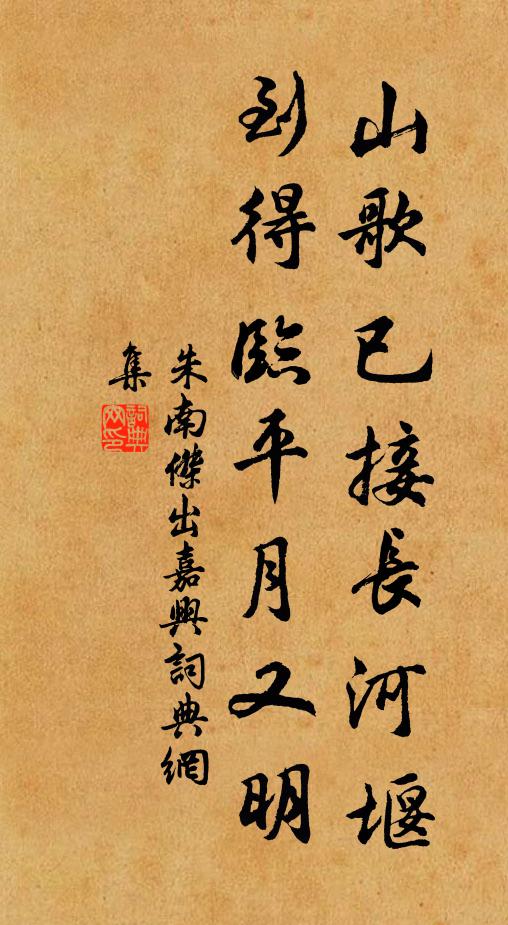 山歌已接長河堰
到得臨平月又明
朱南傑出嘉興詞典網
集
詞典
网印